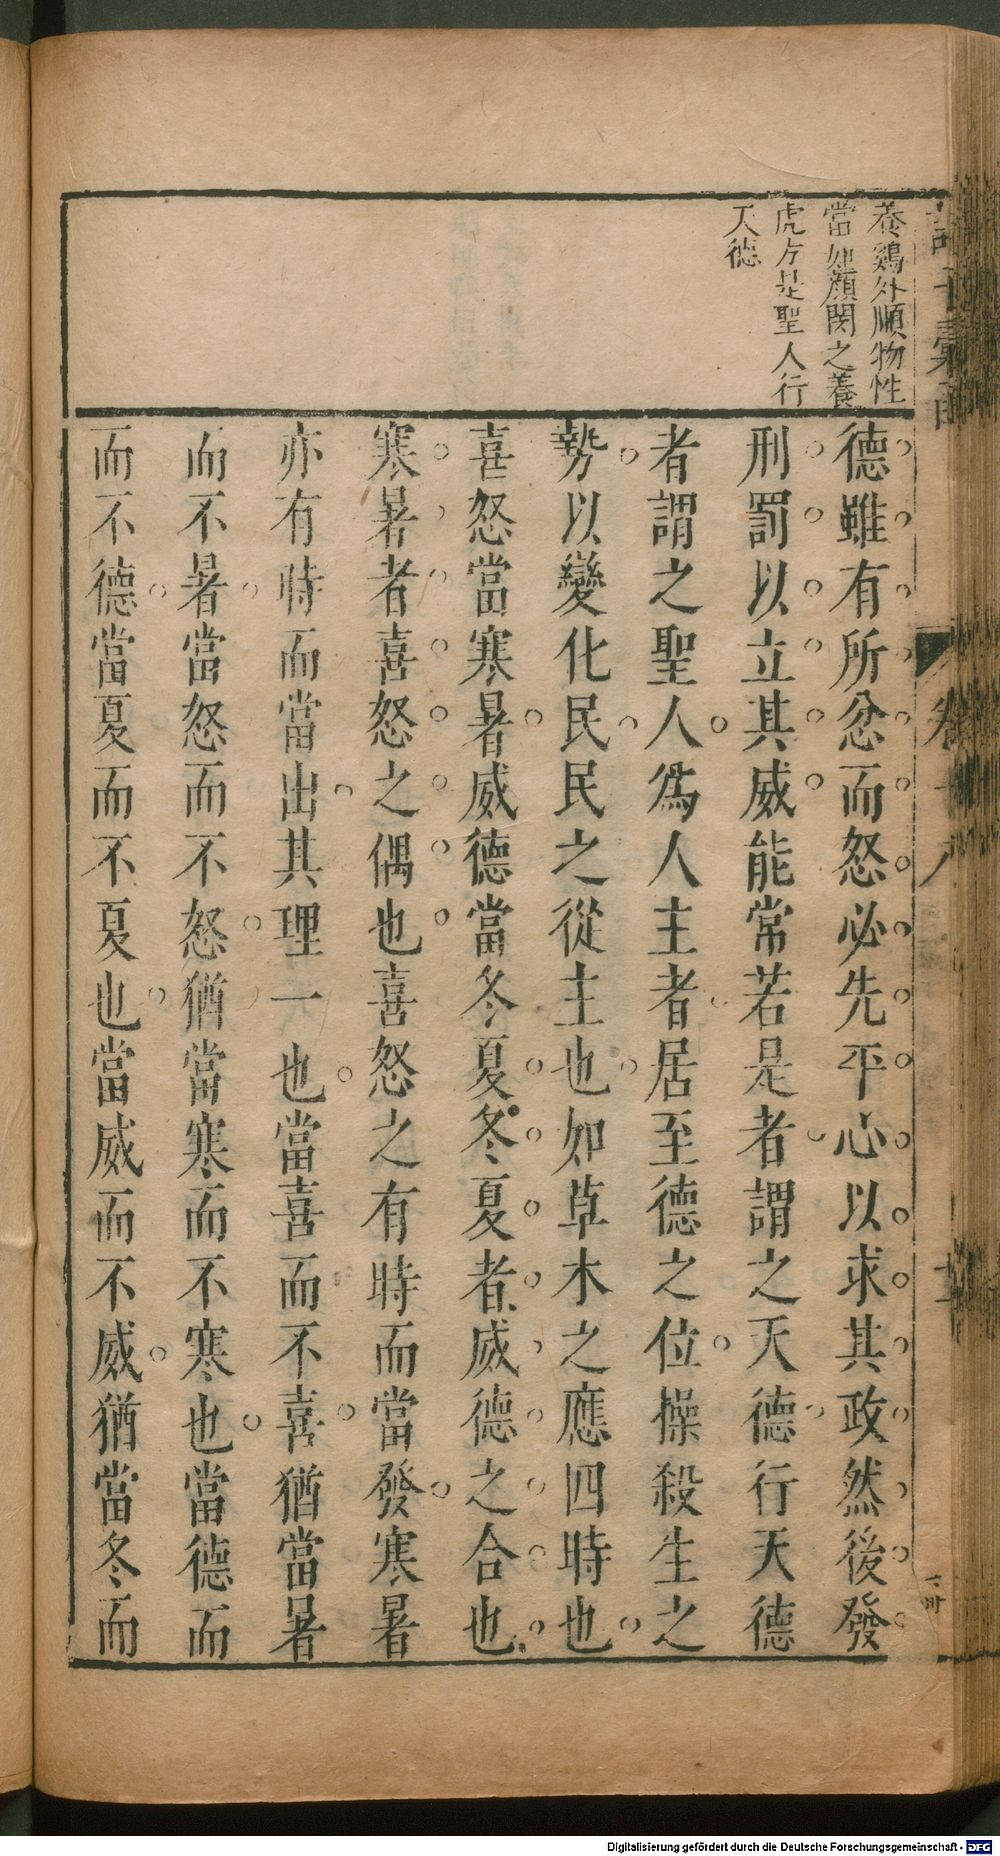 養鷄外順物性
當如顔闵之養
虎方是聖人行
天德
德雖有所忿而怒必先平心以求其政然後發
刑罰以立其威能常若是者謂之天德行天德
者謂之聖人爲人主者居至德之位操殺生之
勢以變化民民之從主也如草木之應四時也
喜怒當寒暑威德當冬夏冬夏者威德之合也
寒暑者喜怒之偶也喜怒之有時而當發寒暑
亦有時而當出其理一也當喜而不喜猶當暑
而不暑當怒而不怒猶當寒而不寒也當德而
而不德當夏而不夏也當威而不威猶當冬而
Digitalisierung gefördert durch die Deutsche Forschungsgemeinschaft - DFG